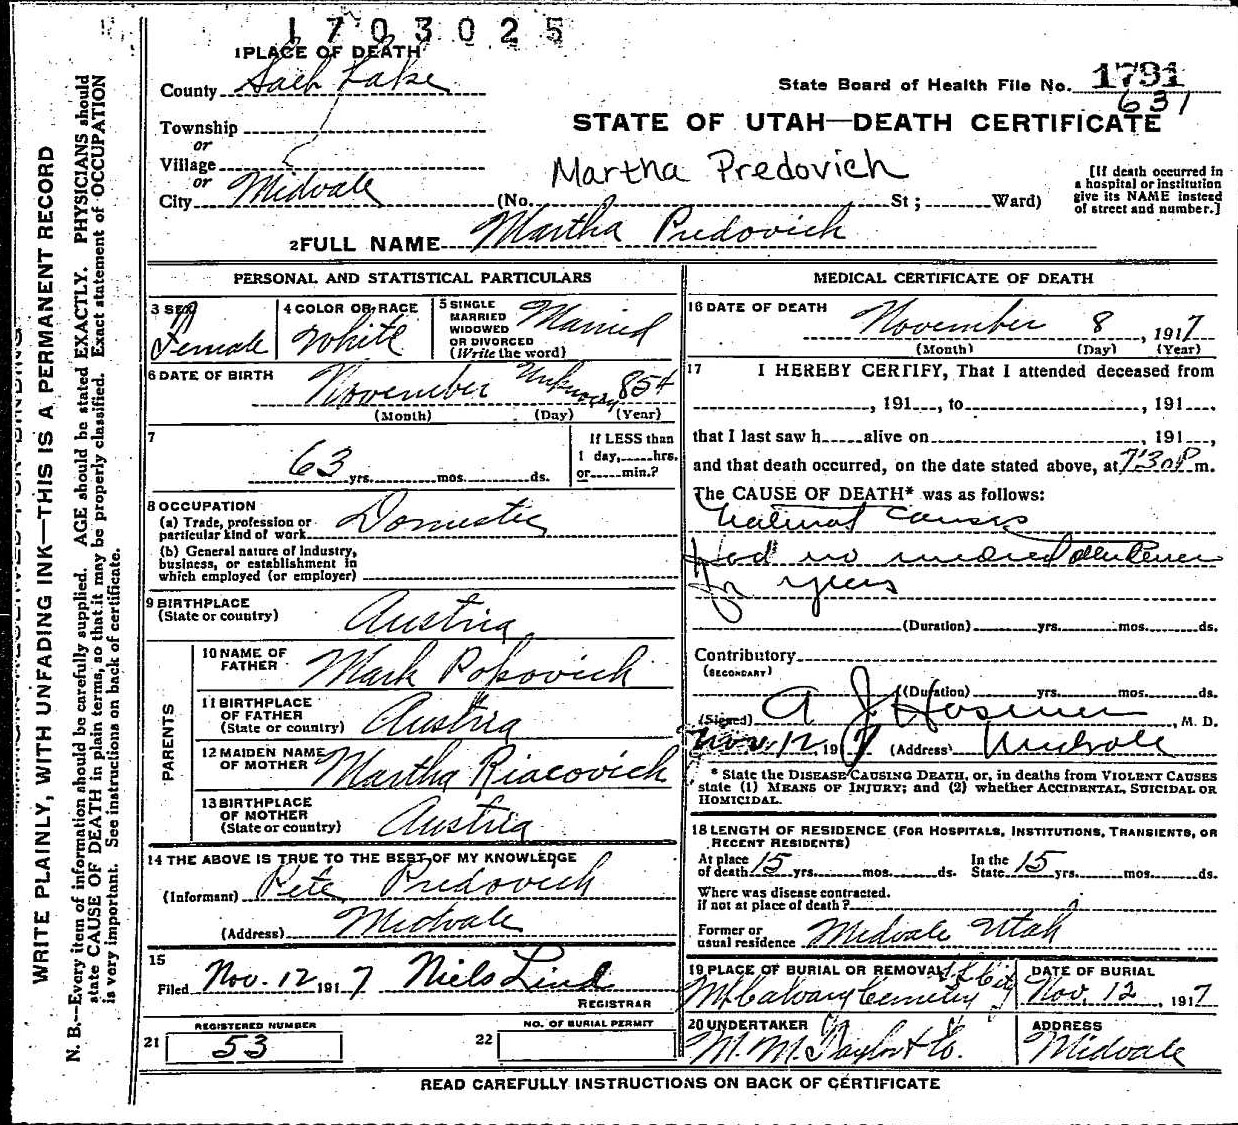 1703025
1 PLACE OF DEATH
County Salt Lake
State Board of Health File No. 1791
631
Township
or
STATE OF UTAH—DEATH CERTIFICATE
Village
or
Martha Predovich
City Midvale (No. St; Ward)
[If death occurred in
a hospital or institution
give its NAME instead
of street and number.]
2 FULL NAME Martha Predovich
PERSONAL AND STATISTICAL PARTICULARS
3 SEX Female
4 COLOR OR RACE White
5 SINGLE
MARRIED
WIDOWED
OR DIVORCED
(Write the word) Married
6 DATE OF BIRTH November Unknown 1854
(Month) (Day) (Year)
7
63 yrs. mos. ds.
If LESS than
1 day, hrs.
or min.?
8 OCCUPATION
(a) Trade, profession or
particular kind of work Domestic
(b) General nature of Industry,
business, or establishment in
which employed (or employer)
9 BIRTHPLACE
(State or country) Austria
PARENTS
10 NAME OF
FATHER Mark Popovich
11 BIRTHPLACE
OF FATHER
(State or country) Austria
12 MAIDEN NAME
OF MOTHER Martha Riacovich
13 BIRTHPLACE
OF MOTHER
(State or country) Austria
14 THE ABOVE IS TRUE TO THE BEST OF MY KNOWLEDGE
(Informant) Pete Predovich
(Address) Midvale
15
Filed Nov. 12 1917 Niels Lind
REGISTRAR
REGISTERED NUMBER
21 53
NO. OF BURIAL PERMIT
22
MEDICAL CERTIFICATE OF DEATH
16 DATE OF DEATH
November 8, 1917
(Month) (Day) (Year)
17 I HEREBY CERTIFY, That I attended deceased from
, 191 , to , 191 ,
that I last saw h alive on , 191 ,
and that death occurred, on the date stated above, at 7:30 P m.
The CAUSE OF DEATH* was as follows:
Natural causes
Had no medical attendance
for years
(Duration) yrs. mos. ds.
Contributory
(SECONDARY)
(Duration) yrs. mos. ds.
(Signed) A J Hosmer, M. D.
Nov. 12, 1917 (Address) Midvale
* State the DISEASE CAUSING DEATH, or, in deaths from VIOLENT CAUSES
state (1) MEANS OF INJURY; and (2) whether ACCIDENTAL, SUICIDAL OR
HOMICIDAL.
18 LENGTH OF RESIDENCE (FOR HOSPITALS, INSTITUTIONS, TRANSIENTS, OR
RECENT RESIDENTS)
At place
of death 15 yrs. mos. ds.
In the
State 15 yrs. mos. ds.
Where was disease contracted.
if not at place of death?
Former or
usual residence Midvale Utah
19 PLACE OF BURIAL OR REMOVAL S. L. City
Mt Calvary Cemetery
DATE OF BURIAL
Nov. 12, 1917
20 UNDERTAKER
M. M. Taylor & Co.
ADDRESS
Midvale
READ CAREFULLY INSTRUCTIONS ON BACK OF CERTIFICATE
WRITE PLAINLY, WITH UNFADING INK—THIS IS A PERMANENT RECORD
N. B.—Every item of information should be carefully supplied. AGE should be stated EXACTLY. PHYSICIANS should
state CAUSE OF DEATH in plain terms, so that it may be properly classified. Exact statement of OCCUPATION
is very important. See instructions on back of certificate.